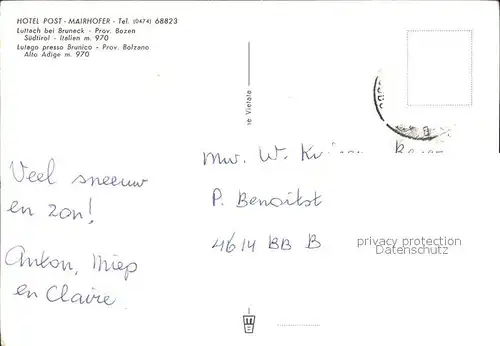 HOTEL POST - MAIRHOFER - Tel. (0474) 68823
Luttach bei Bruneck - Prov. Bozen
Südtirol - Italien m. 970
Lutago presso Brunico - Prov. Bolzano
Alto Adige m. 970
Vietata
Veel sneeuw
en zon!
Anton, Miep
en Claire
Mw. W.
P. Benoitst
4614 BB B
privacy protection
Datenschutz